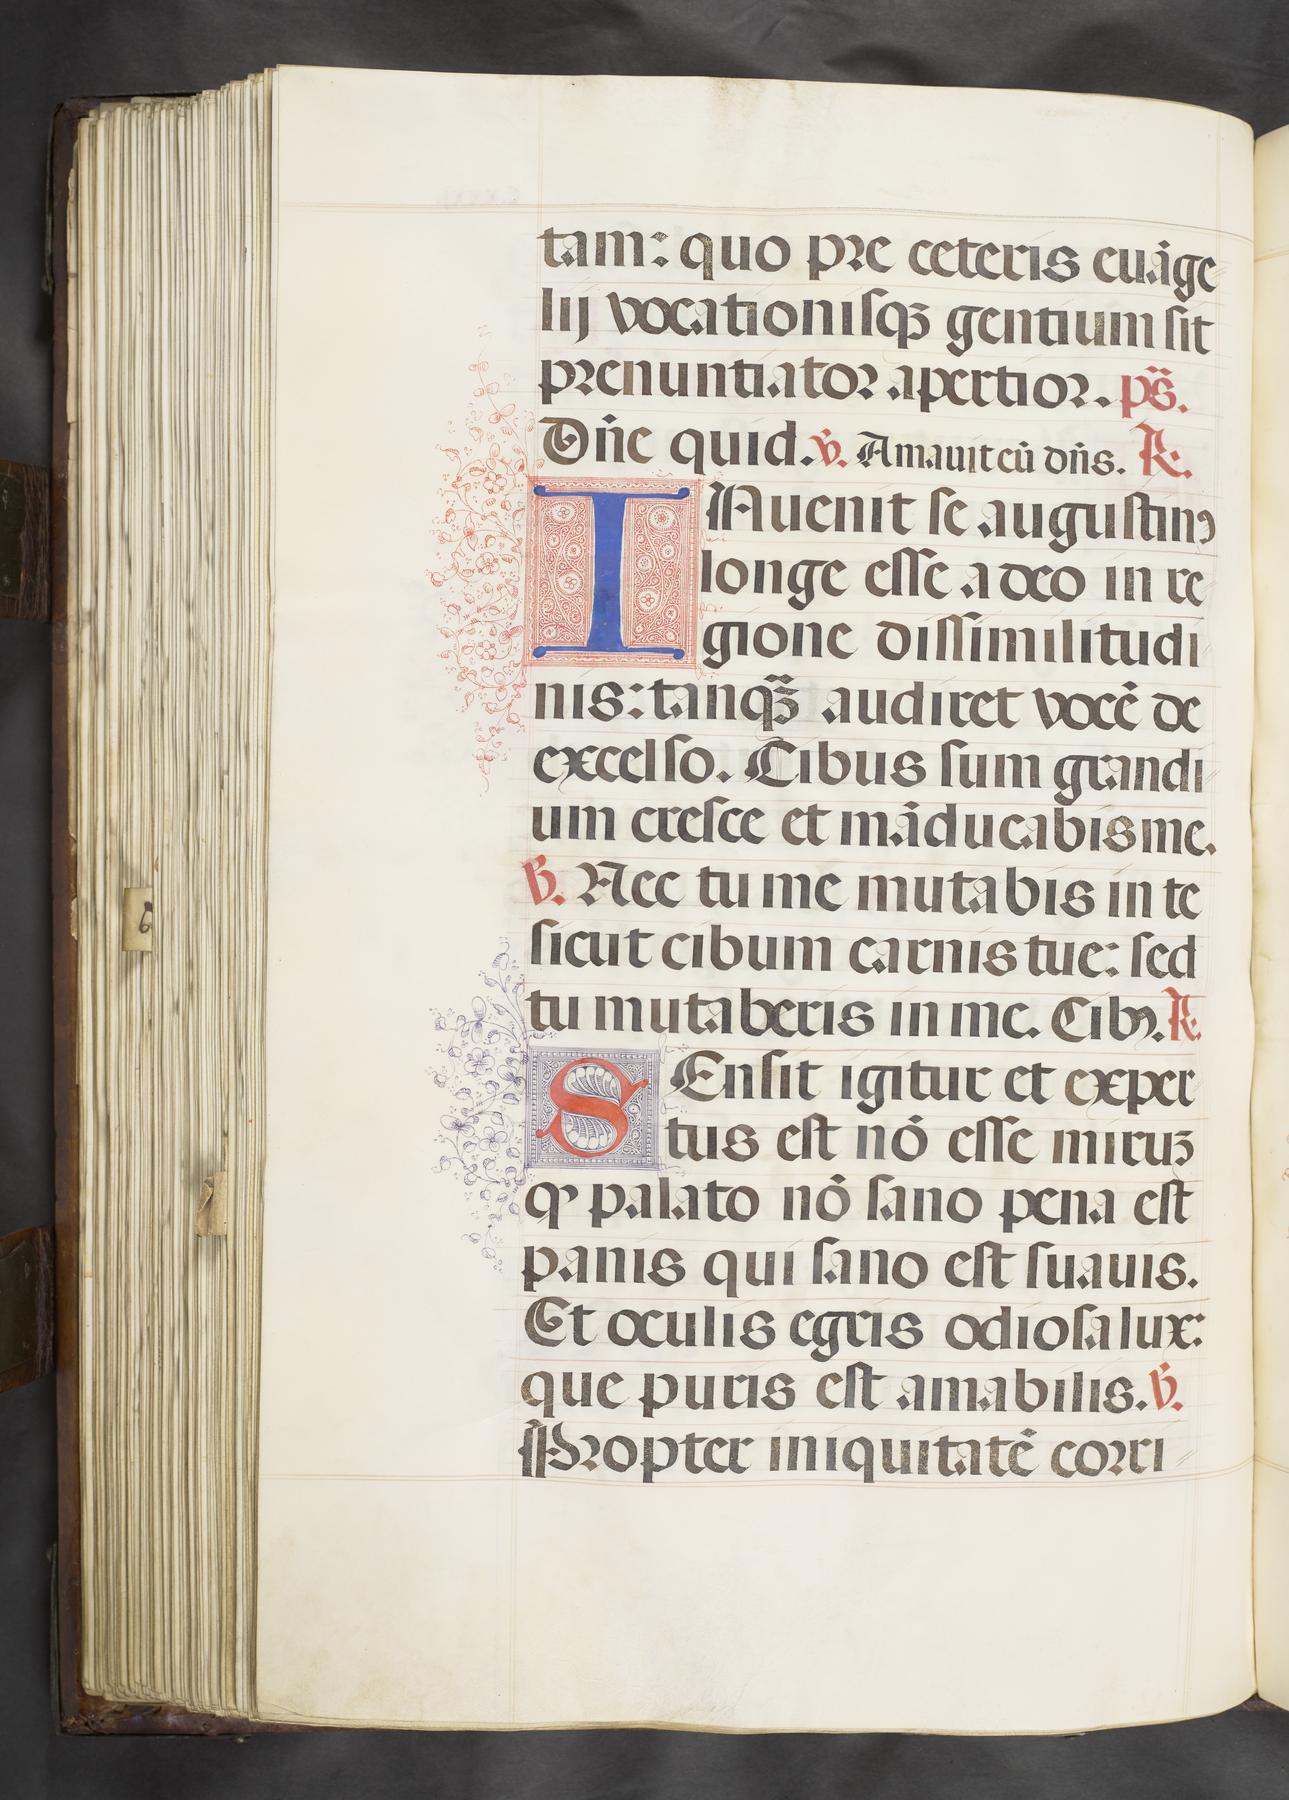 tam: quo pre ceteris euāge
lij vocationisqꝫ gentium sit
prenuntiator apertior. ps̄.
Dn̄e quid. ℣. Amauit eū dn̄s. ℟.
INuenit se augustinꝯ
longe esse a deo in re
gione dissimilitudi
nis: tanqꝫ̄ audiret vocē de
excelso. Cibus sum grandi
um cresce et māducabis me.
℣. Nec tu me mutabis in te
sicut cibum carnis tue: sed
tu mutaberis in me. Cibꝯ. ℟.
SEnsit igitur et exper
tus est nō esse miruꝫ
qꝙ palato nō sano pena est
panis qui sano est suauis.
Et oculis egris odiosa lux:
que puris est amabilis. ℣.
Propter iniquitatē corri
6